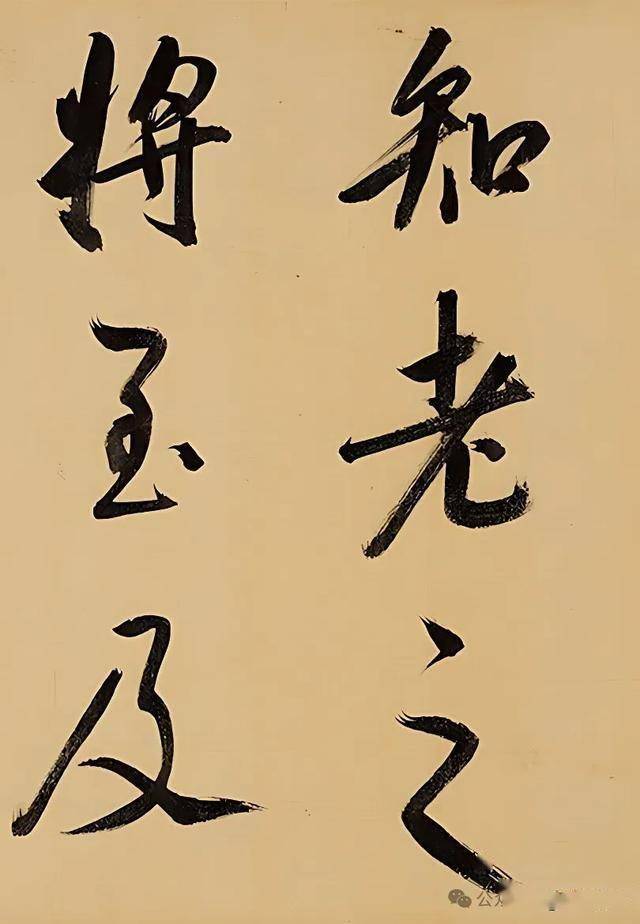 知老之
将至及
公众